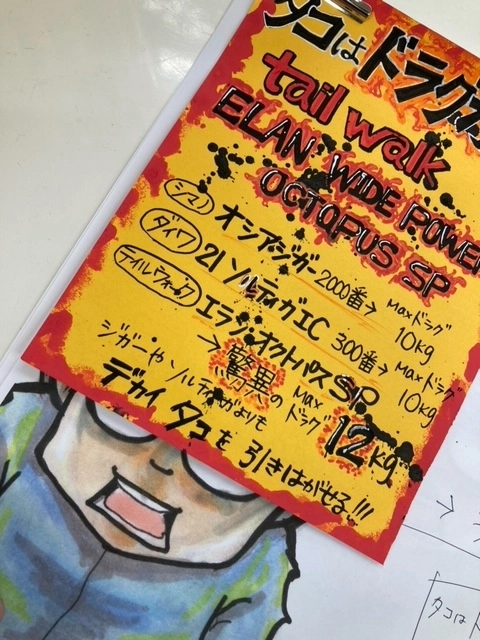 タコはドラグ
tail walk
ELAN WIDE POWER
OCTOPUS SP
シマノ オシアジガー 2000番→ Maxドラグ 10kg
ダイワ 21ソルティガIC 300番→ Maxドラグ 10kg
テイルウォーク エランオクトパスSP
→ 驚異のMaxドラグ12kg
ジガーやソルティガよりも
デカイタコを引きはがせる!!!
→
タコは